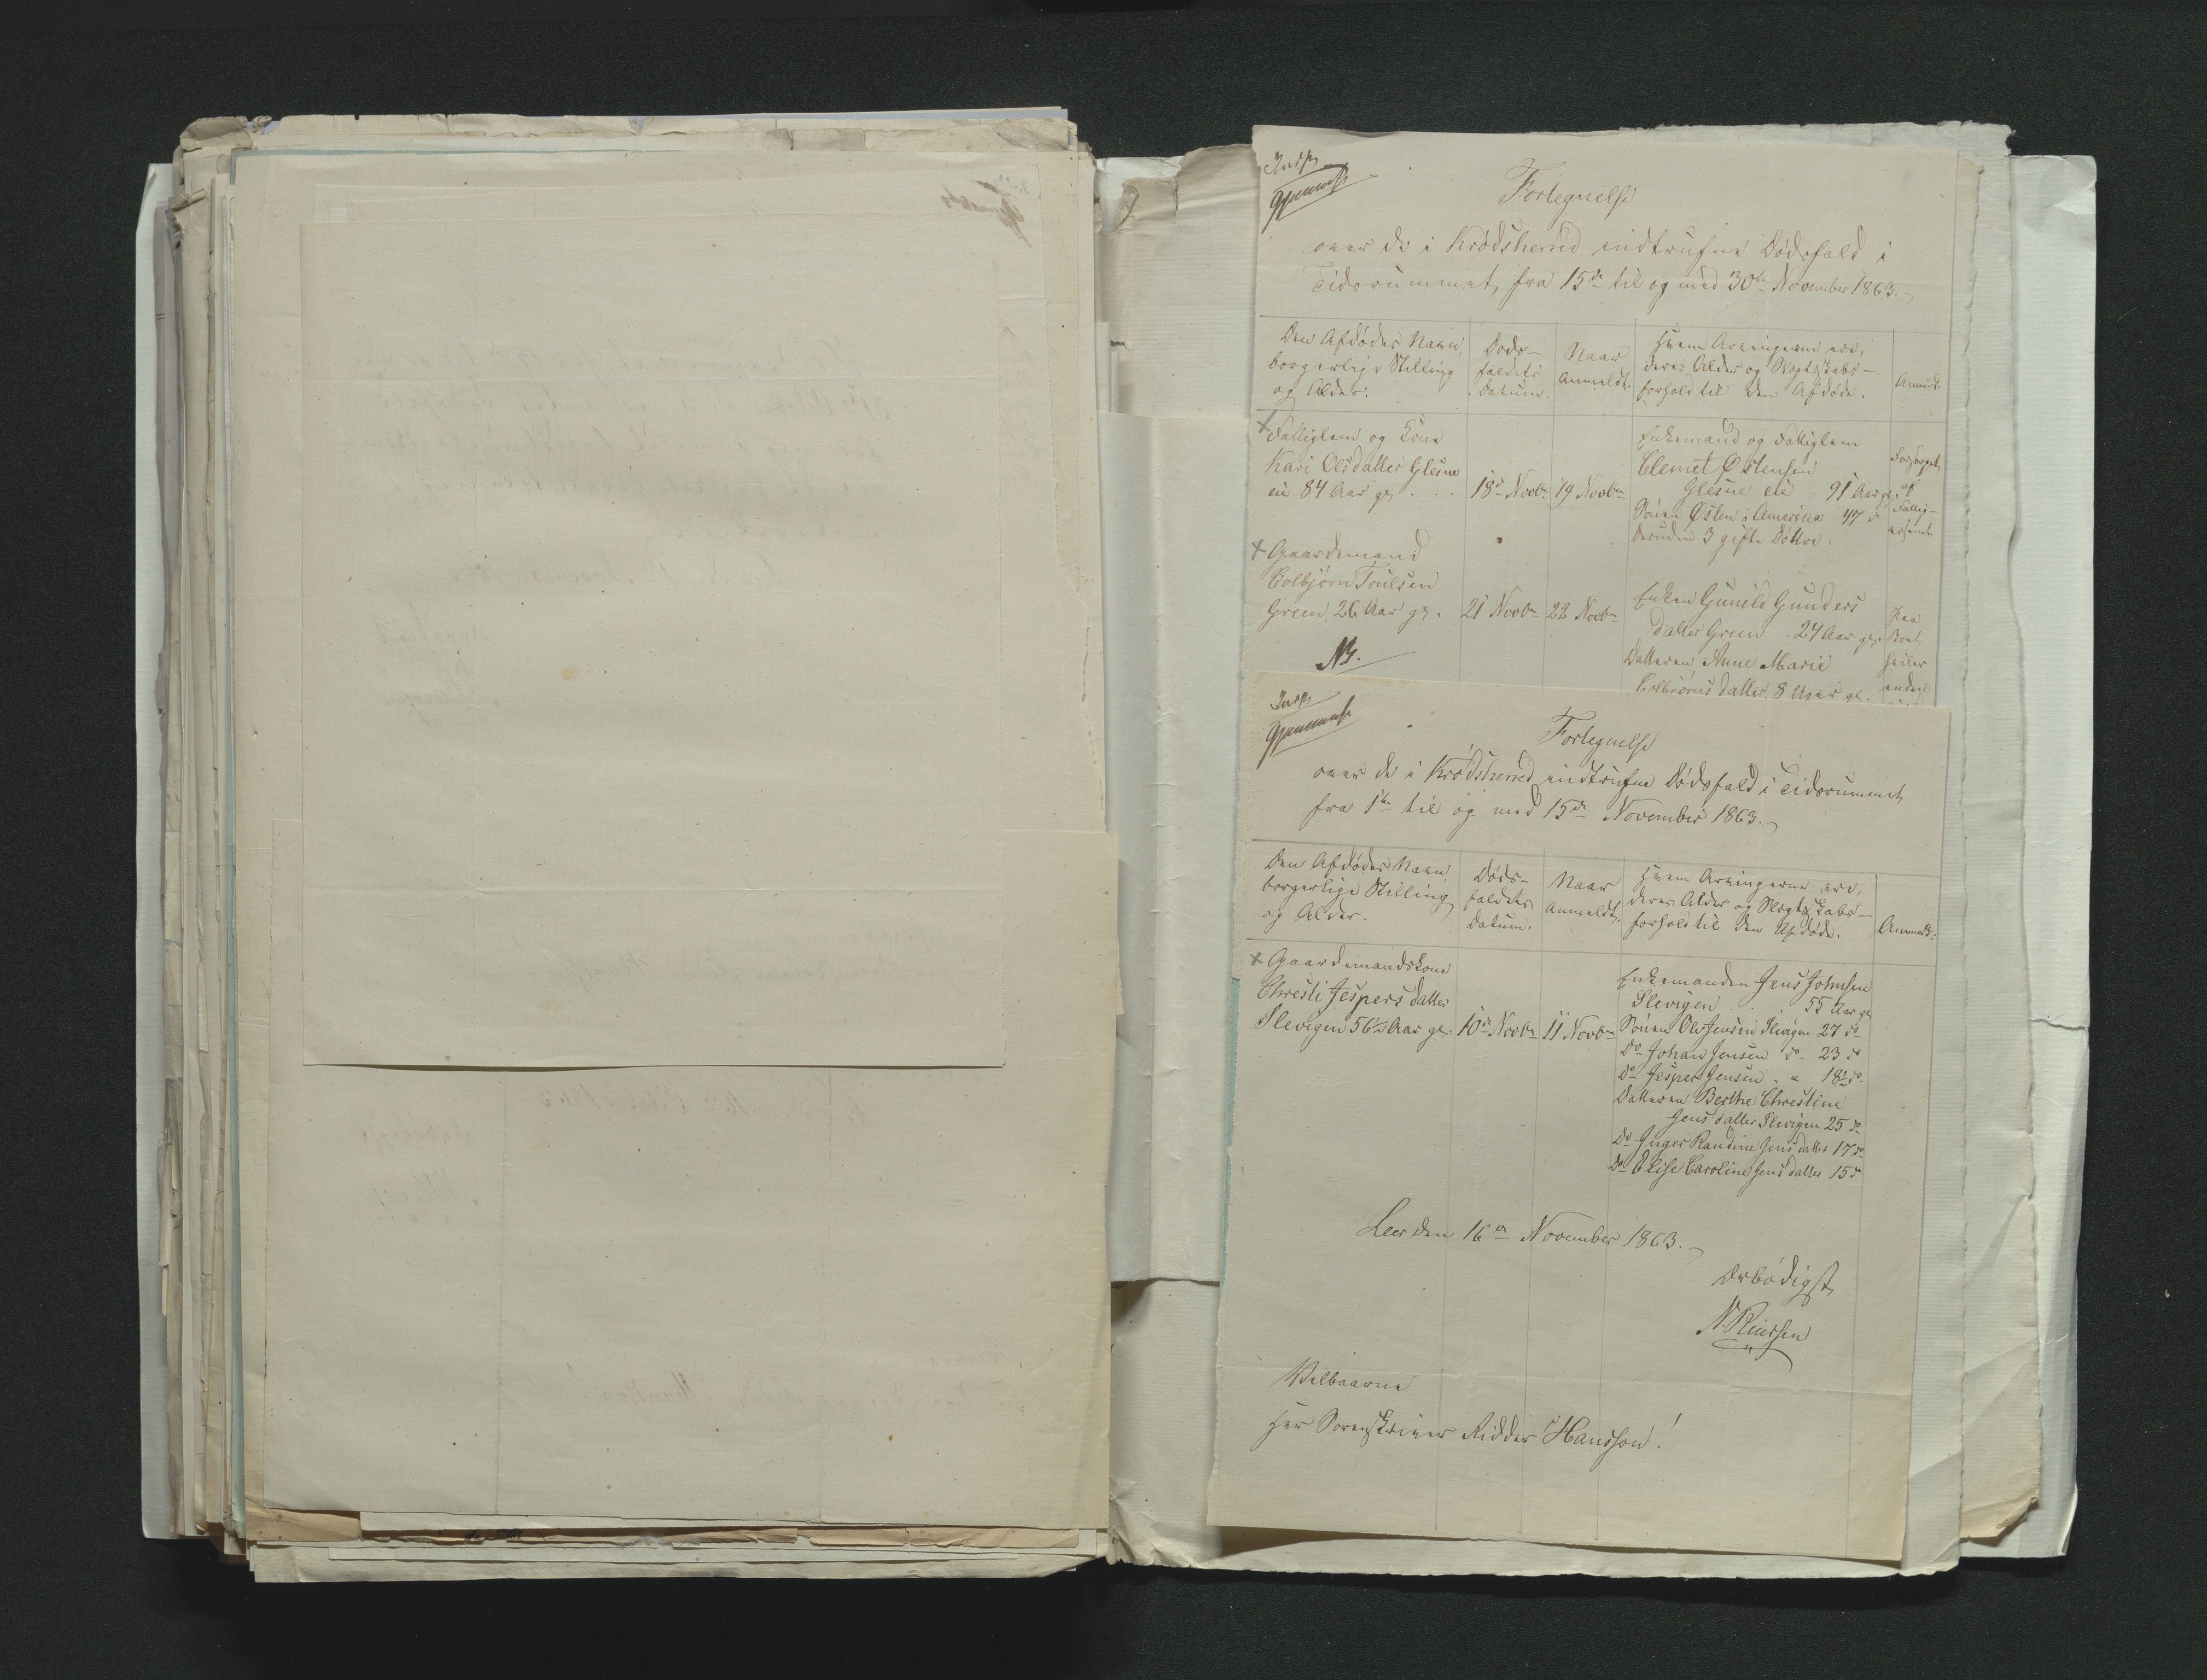 Fortegnelse
over de i Krødsherred indtrufne Dødsfald i
Tidsrummet fra 15de til og med 30te November 1863.
Den Afdødes Navn,
borgerlige Stilling
og Alder.
Døds-
faldets
Datum.
Naar
Anmeldt.
Hvem Arvingerne ere,
deres Alder og Slægtskabs-
forhold til den Afdøde.
Anmærk.
Fattiglem og Kone
Kari Olsdatter Glesne
eie 84 Aar gl. . .
18de Novbr
19 Novbr
Enkemand og Fattiglem
Clemet Østensen
Glesne eie . 91 Aar gl.
Sønnen Østen i Amerika 47 do
desuden 3 gifte Døttre.
Forsørget
af
Fattig-
væsenet
Gaardemand
Colbjørn Trulsen
Green, 26 Aar gl.
21 Novbr
22 Novbr
Enken Gunild Gunders
datter Green . 24 Aar gl.
Datteren Anne Marie
Colbjørnsdatter, 8 Uger gl.
NB.
Fortegnelse
over de i Krødsherred indtrufne Dødsfald i Tidsrummet
fra 1ste til og med 15de November 1863.
Den Afdødes Navn
borgerlige Stilling
og Alder.
Døds-
faldets
Datum.
Naar
Anmeldt.
Hvem Arvingerne ere,
deres Alder og Slægtskabs-
forhold til den Afdøde.
Anmærk:
Gaardemandskone
Chresti Jespersdatter
Slevigen 56½ Aar gl.
10de Novbr
11 Novbr
Enkemanden Jens Johnsen
Slevigen . 55 Aar gl
Sønnen Ole Jensen Slevigen 27 do
Do Johan Jensen do 23 do
Do Jesper Jensen . " 18½ do
Datteren Berthe Christine
Jensdatter Slevigen 25 do
Do Inger Randine Jensdatter 17 do
Do Elise Caroline Jensdatter 15 do
Leer den 16de November 1863.
Ærbødigst
N. Ruersen
Velbaarne
Herr Sorenskriver Ridder Hansson!